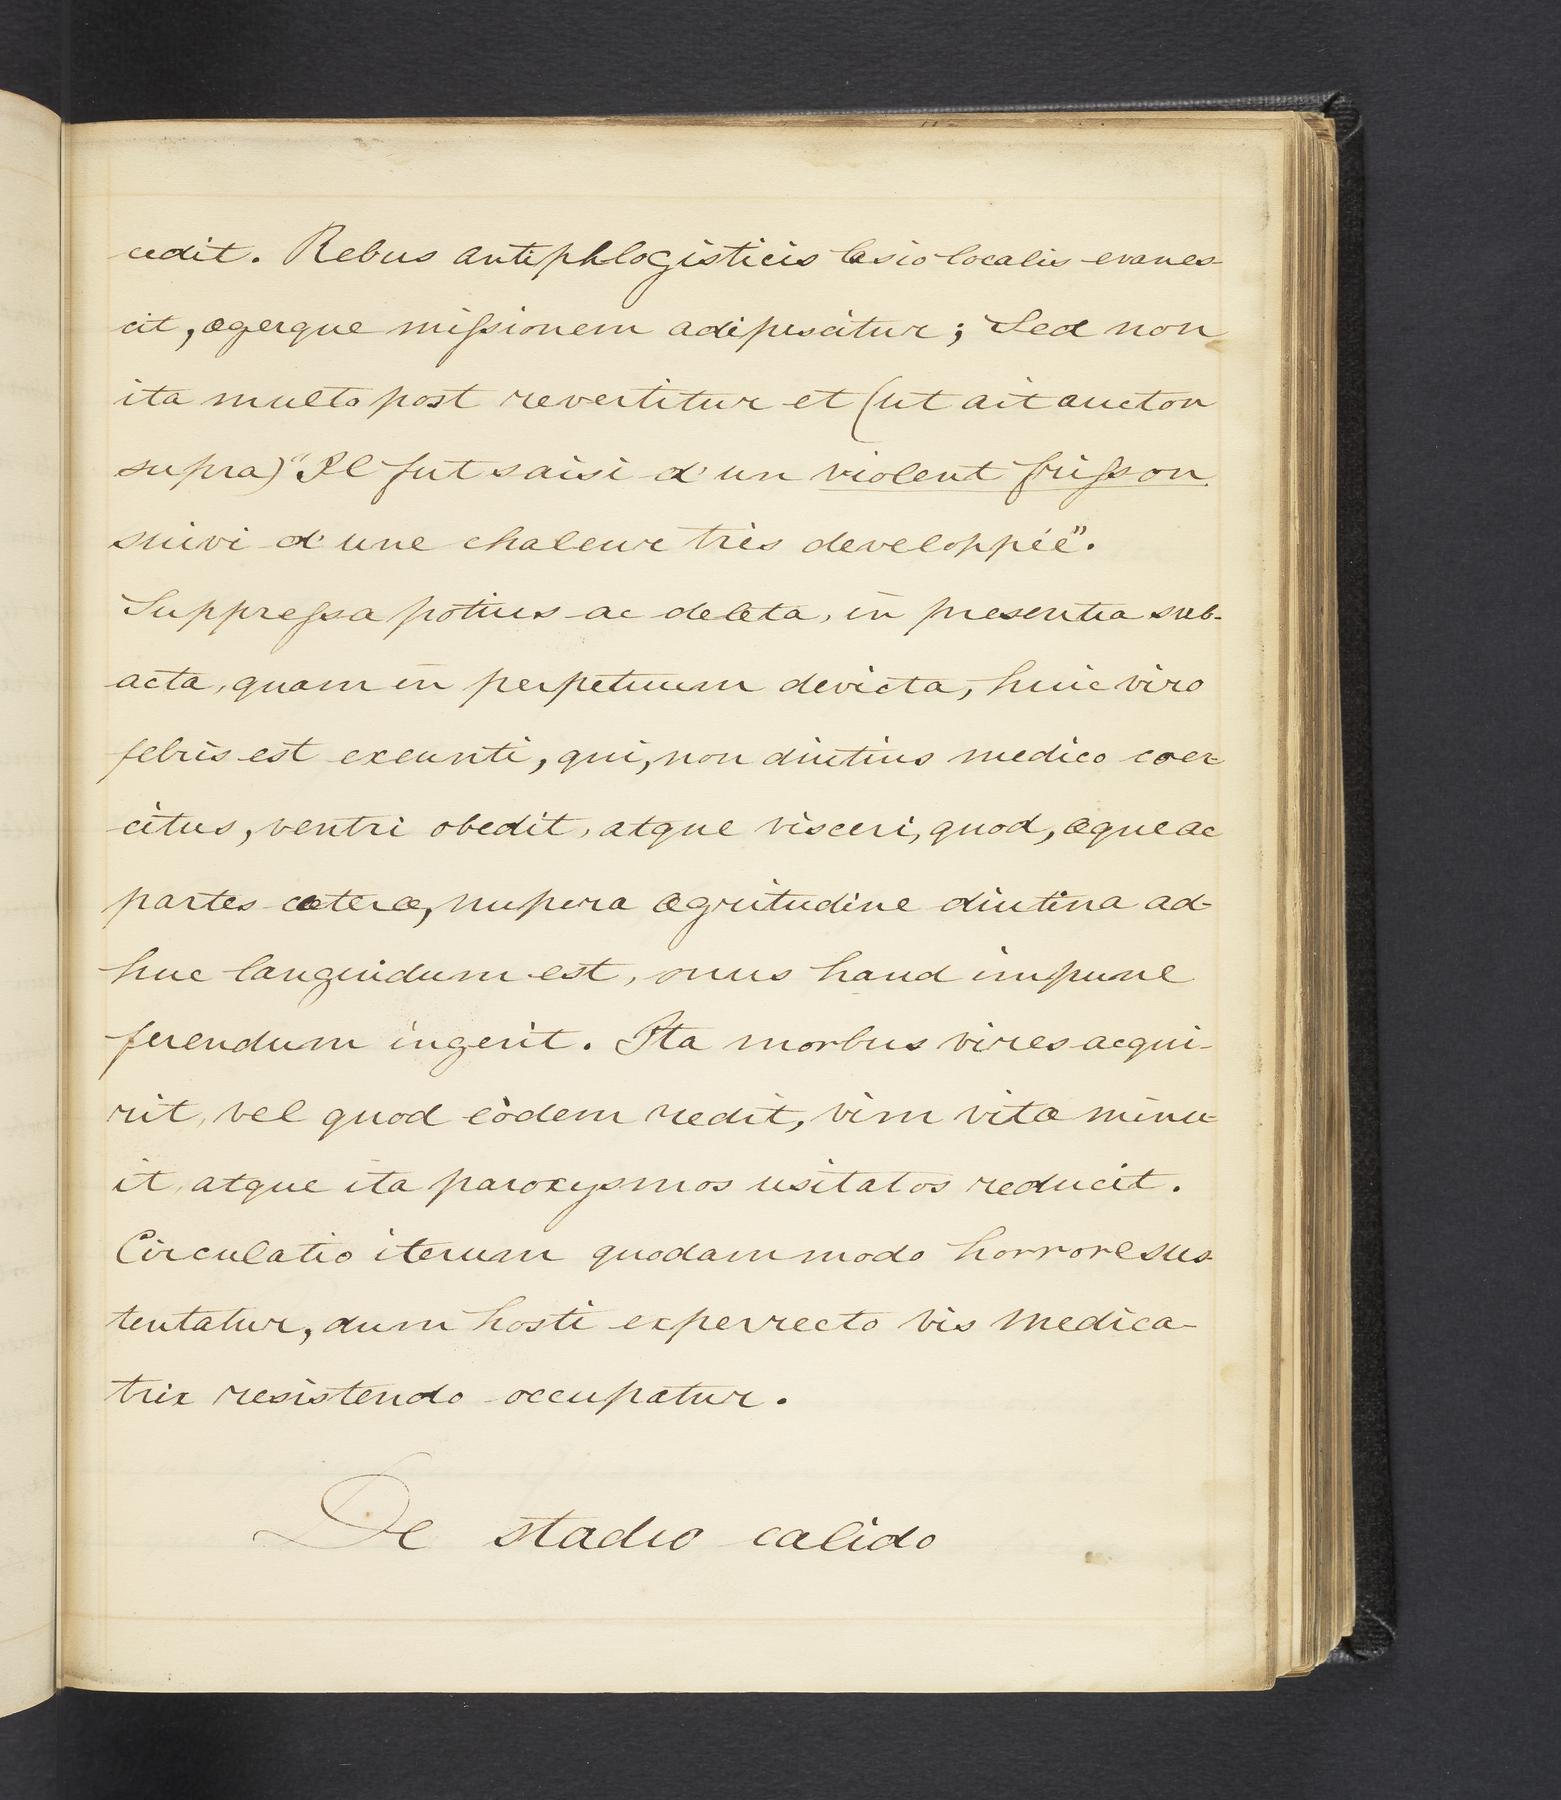 cedit. Rebus antiphlogisticis læsio localis evanes-
cit, ægerque missionem adipiscitur; Sed non
ita multo post revertitur et (ut ait auctor
supra) "Il fut saisi d'un violent frisson
suivi d'une chaleur très developpée".
Suppressa potius ac deleta, in presentia sub-
acta, quam in perpetuum devicta, huic viro
febris est exeunti, qui, non diutius medico coer-
citus, ventri obedit, atque visceri, quod, æque ac
partes cæteræ, nupera ægritudine diutina ad-
huc languidum est, onus haud impune
ferendum ingerit. Ita morbus vires acqui-
rit, vel quod eòdem redit, vim vitæ minu-
it, atque ita paroxysmos usitatos reducit.
Circulatio iterum quodammodo horrore sus-
tentatur, dum hosti experrecto vis medica-
trix resistendo occupatur.
De stadio calido